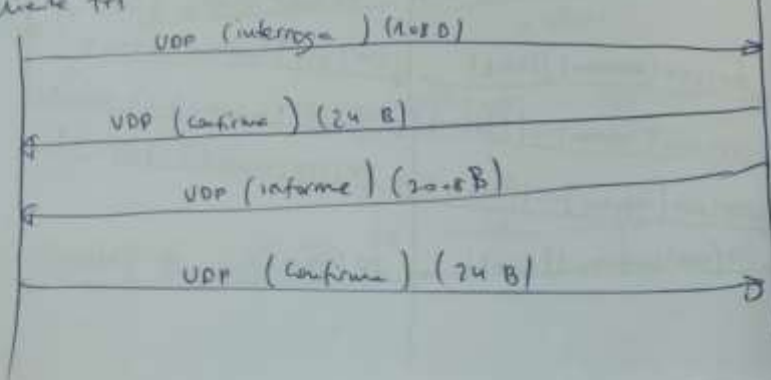 UDP (interroga) (108 B)
UDP (confirma) (24 B)
UDP (informe) (2008 B)
UDP (confirma) (24 B)